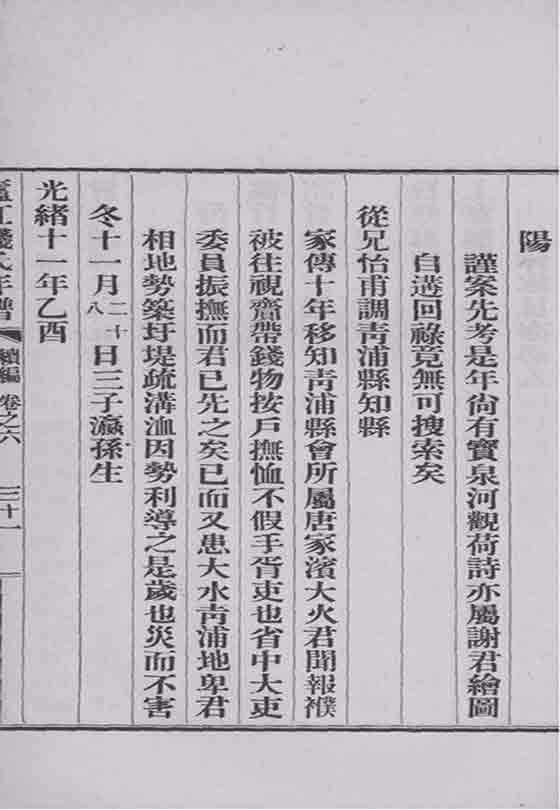 陽
謹案先考是年尙有寳泉河觀荷詩亦屬謝君繪圖
自遘回祿竟無可搜索矣
從兄怡甫調靑浦縣知縣
家傳十年移知靑浦縣會所屬唐家濱大火君聞報襆
被往視齎帶錢物按戶撫恤不假手胥吏也省中大吏
委員振撫而君已先之矣已而又患大水靑浦地卑君
相地勢築圩堤疏溝洫因勢利導之是歲也災而不害
冬十一月二十八日三子瀛孫生
光緒十一年乙酉
廬江錢氏年譜 續編 卷之六 三十一